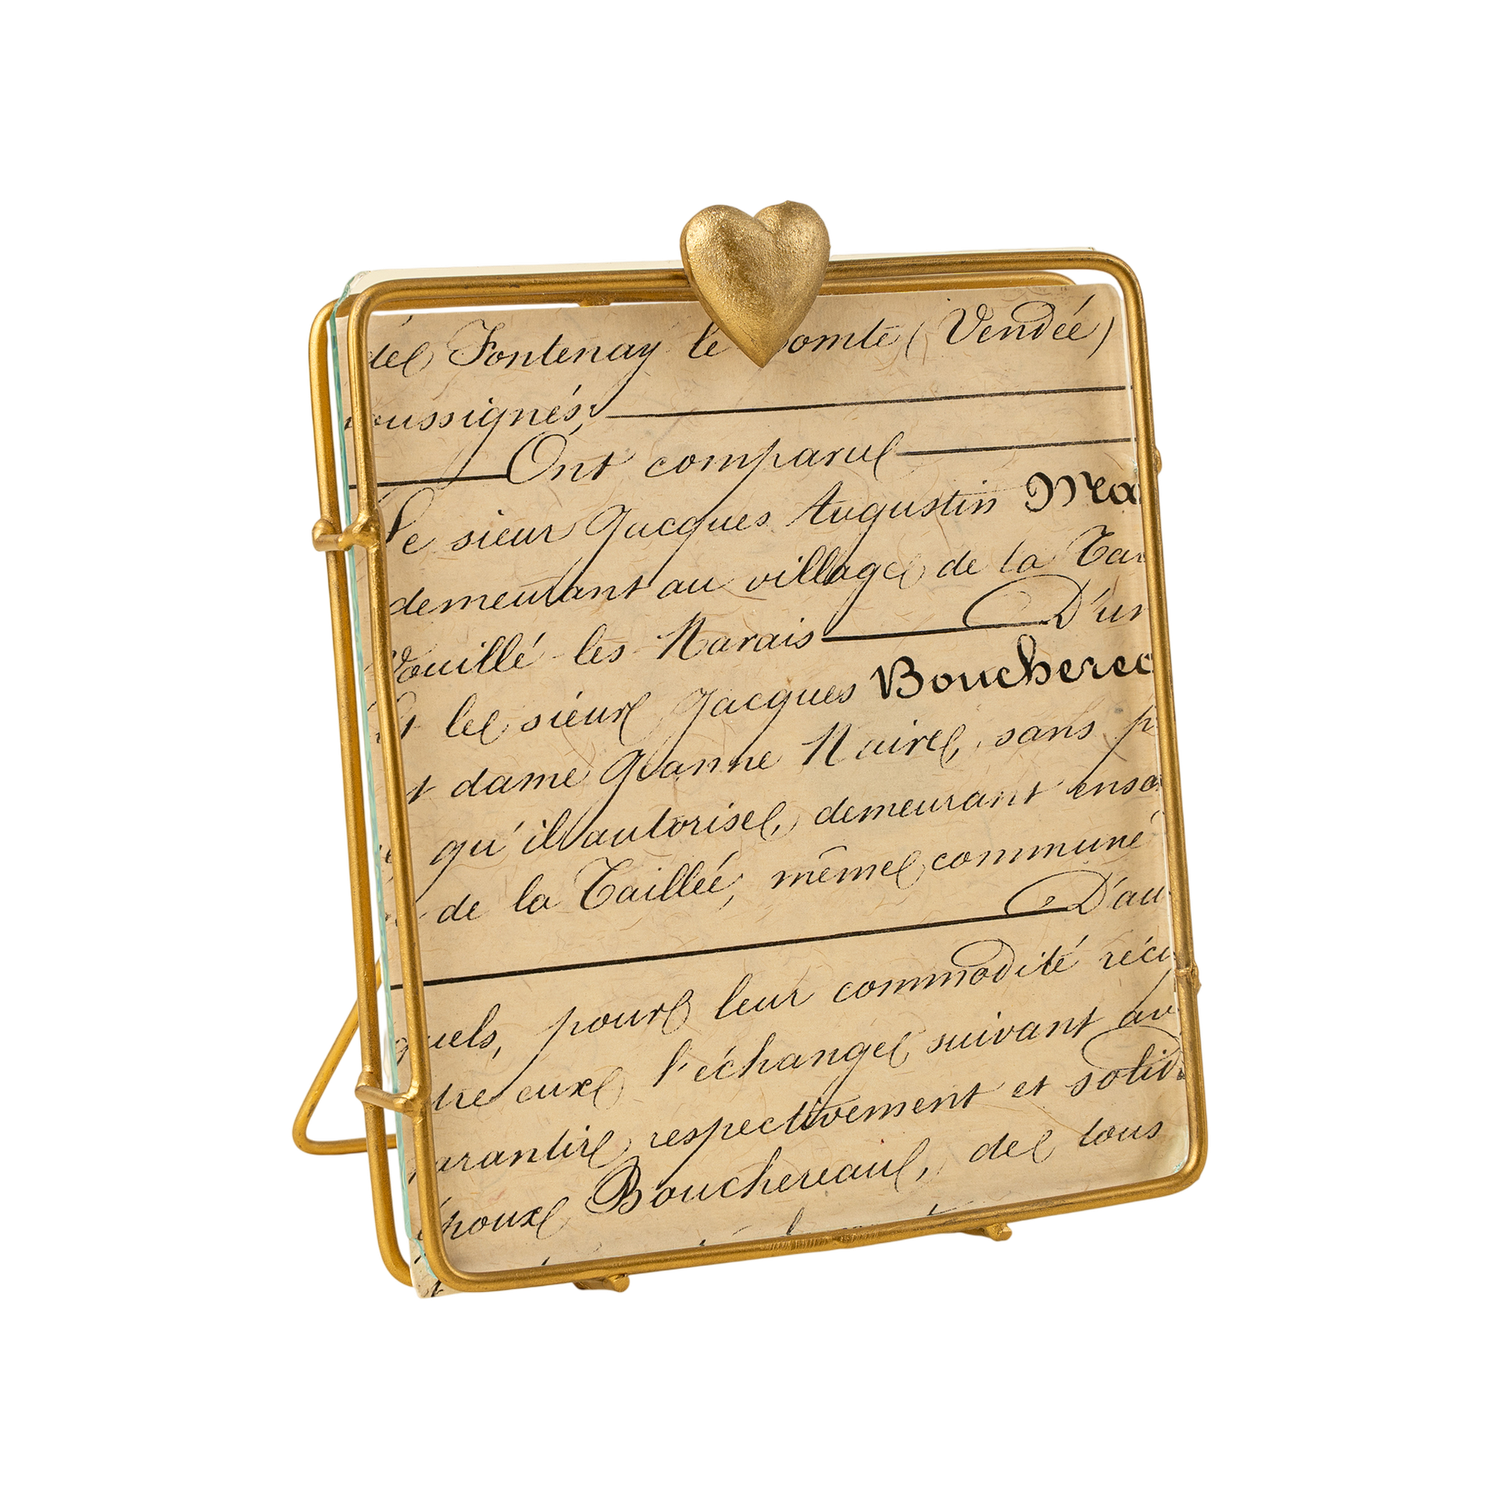 de Fontenay le Comte (Vendée)
soussignés;
Ont comparu
Le sieur Jacques Augustin
demeurant au village de la
Vouillé les Marais D'un
Et le sieur Jacques Boucherea
Et dame Jeanne Naire, sans
qu'il autorise, demeurant
de la Taillée, même commune
D'au
quels, pour leur commodité réci
tre eux l'échange suivant
garantir respectivement et solid
époux Bouchereau, de tous